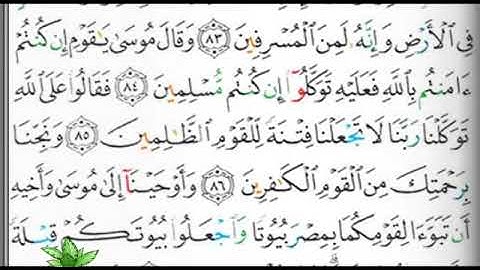 فِي الْأَرْضِ وَإِنَّهُ لَمِنَ الْمُسْرِفِينَ ٨٣ وَقَالَ مُوسَىٰ يَٰقَوْمِ إِن كُنتُمْ
ءَامَنتُم بِاللَّهِ فَعَلَيْهِ تَوَكَّلُوا إِن كُنتُم مُّسْلِمِينَ ٨٤ فَقَالُوا عَلَى اللَّهِ
تَوَكَّلْنَا رَبَّنَا لَا تَجْعَلْنَا فِتْنَةً لِّلْقَوْمِ الظَّٰلِمِينَ ٨٥ وَنَجِّنَا
بِرَحْمَتِكَ مِنَ الْقَوْمِ الْكَٰفِرِينَ ٨٦ وَأَوْحَيْنَآ إِلَىٰ مُوسَىٰ وَأَخِيهِ
أَن تَبَوَّءَا لِقَوْمِكُمَا بِمِصْرَ بُيُوتًا وَاجْعَلُوا بُيُوتَكُمْ قِبْلَةً